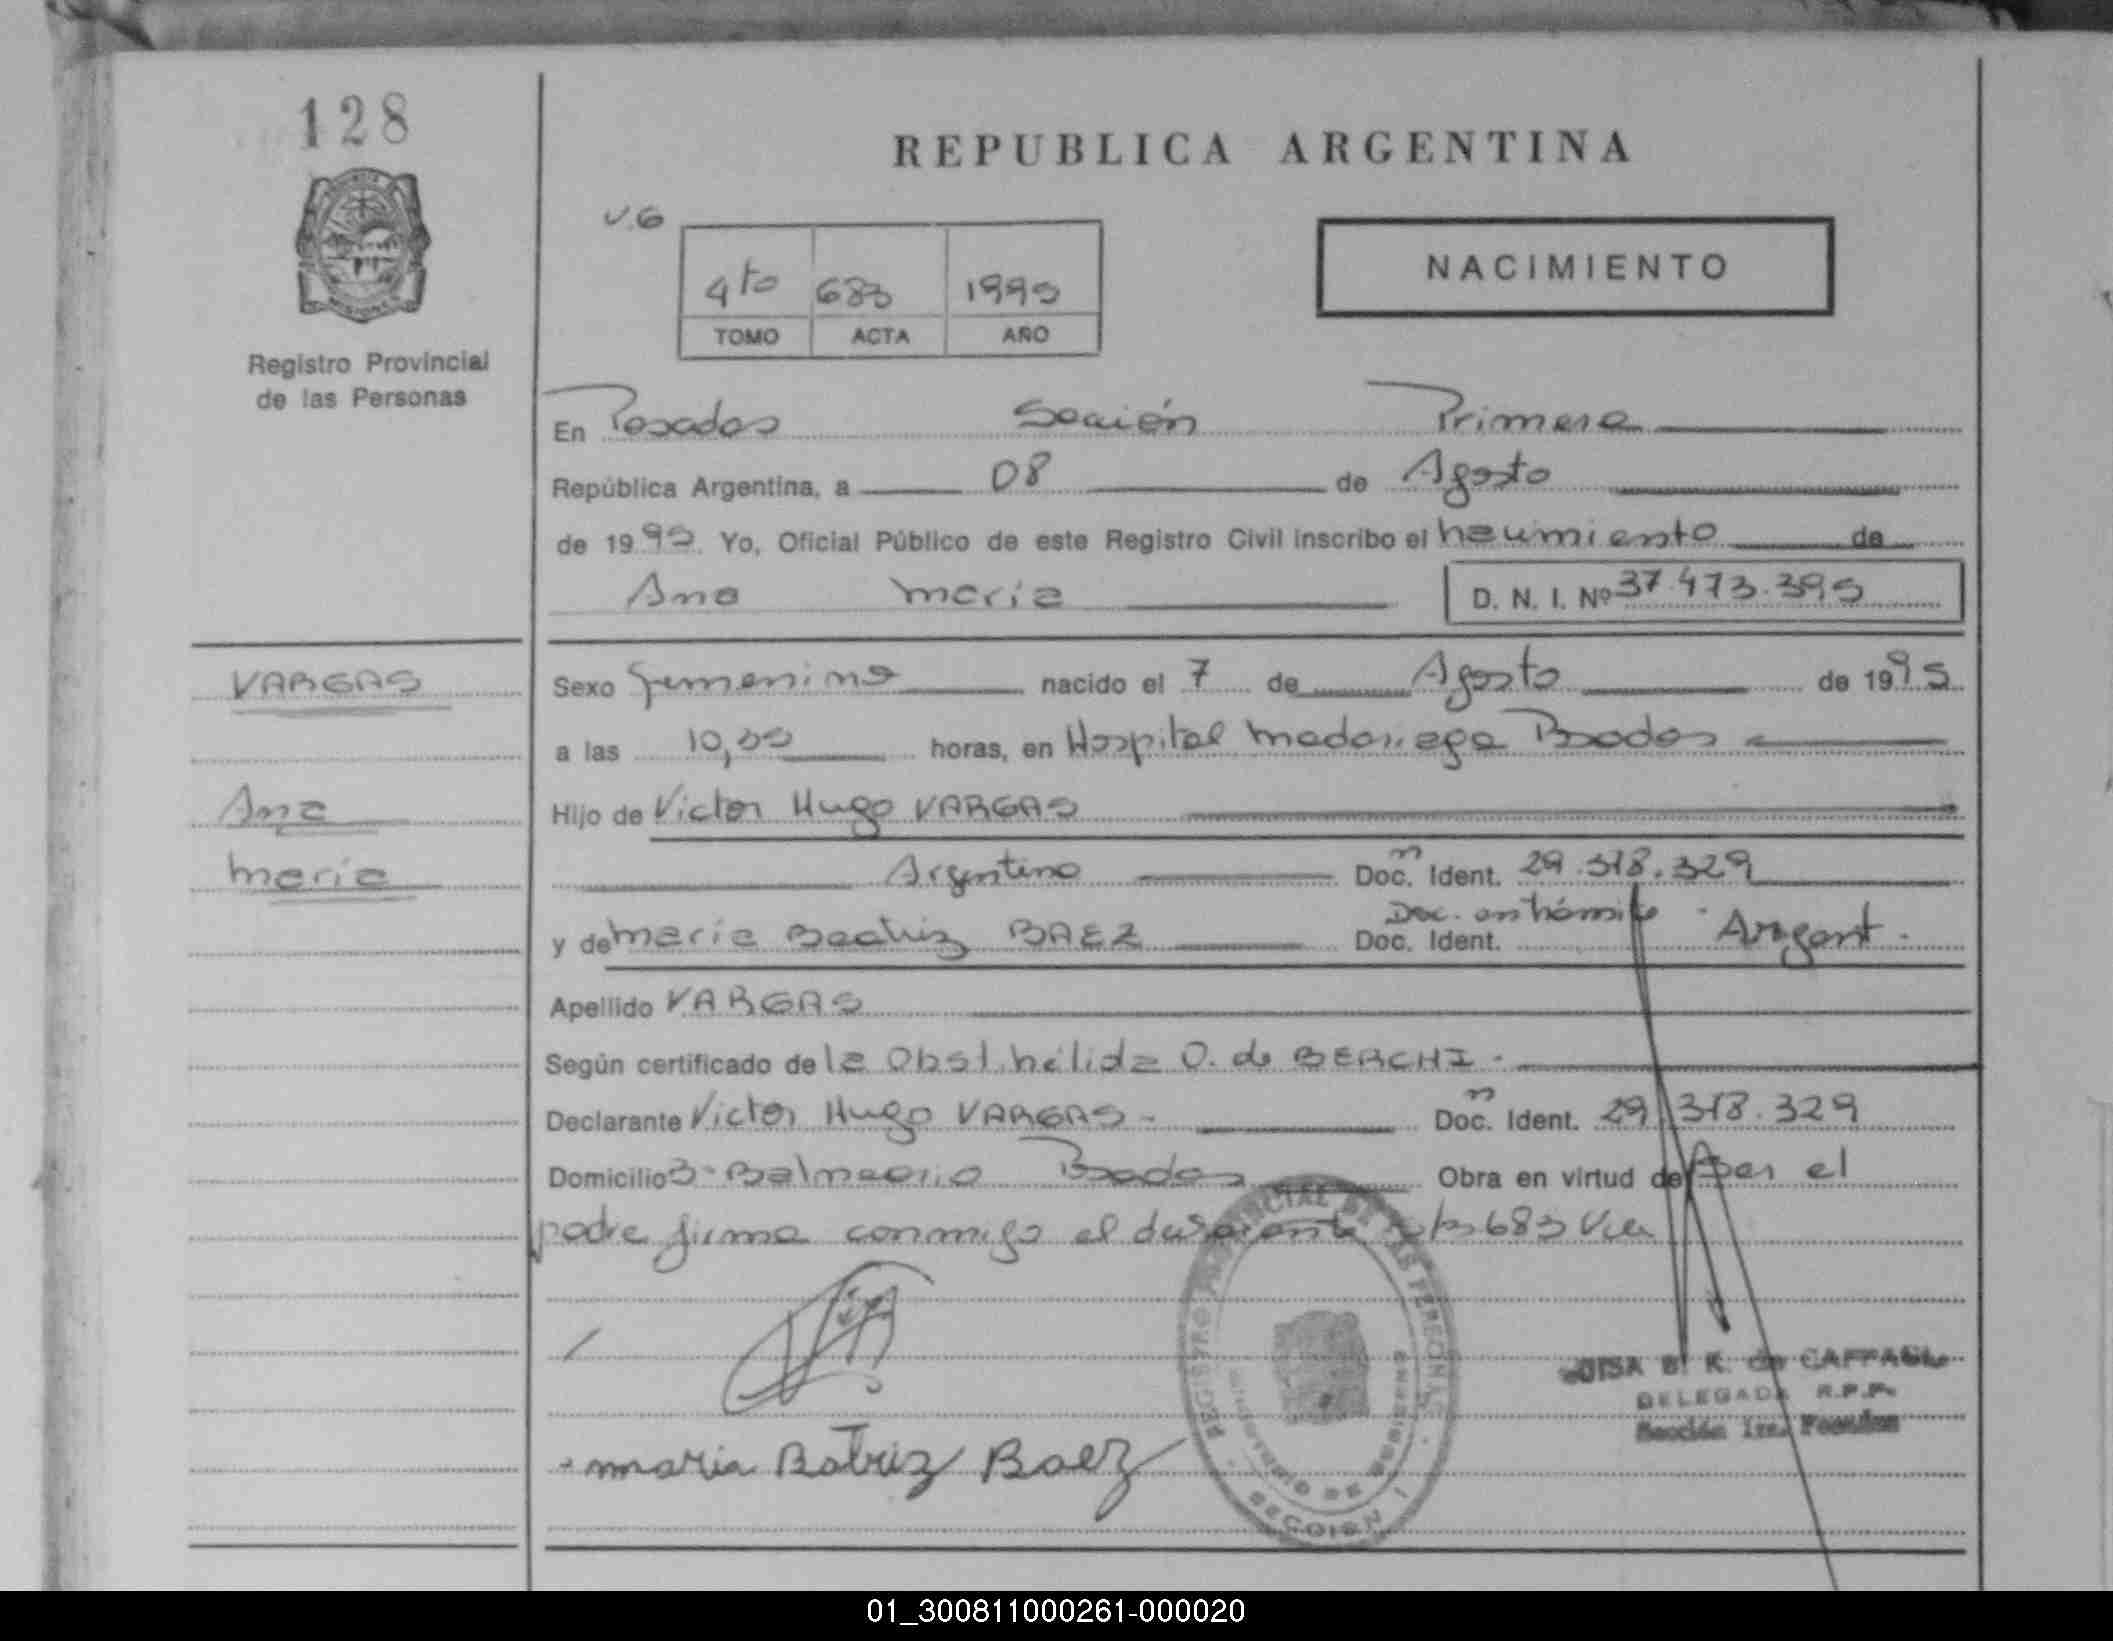 128
REPUBLICA ARGENTINA
v.6
4to 683 1995
TOMO ACTA AÑO
NACIMIENTO
Registro Provincial
de las Personas
En Posadas Sección Primera
República Argentina, a 08 de Agosto
de 1995. Yo, Oficial Público de este Registro Civil inscribo el nacimiento de
Ana maria D. N. I. Nº 37.473.395
VARGAS
Sexo femenino nacido el 7 de Agosto de 1995
a las 10,00 horas, en Hospital madariaga Posadas
Ana
Hijo de Victor Hugo VARGAS
maria
Argentino Doc. Ident. 29.318.329
y de maria Beatriz BAEZ Doc. Ident. Doc. en trámite Argent.
Apellido VARGAS
Según certificado de la Obst. nélida O. de BERCHI.
Declarante Victor Hugo VARGAS. Doc. Ident. 29.318.329
Domicilio Balneario Posadas Obra en virtud de ser el
padre firma conmigo el 683
REGISTRO PROVINCIAL DE LAS PERSONAS
MINISTERIO DE GOBIERNO
SECCION I
B. K. de
DELEGADA R.P.P.
Sección 1ra. Posadas
maria Batriz Baez
01_300811000261-000020